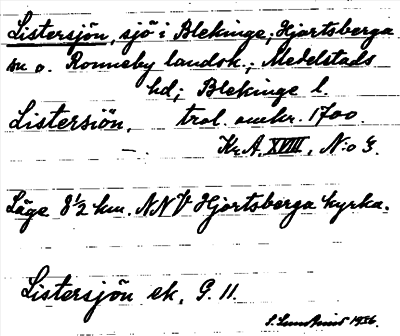 Listersjön, sjö i Blekinge, Hjortsberga
sn o. Ronneby landsk.; Medelstads
hd; Blekinge l.
Listersiön. trol. omkr. 1700.
Kr.A. XVIII, N:o 3.
Läge 8 1/2 km. NNV Hjortsberga kyrka.
Listersjön ek. G. 11.
1936.